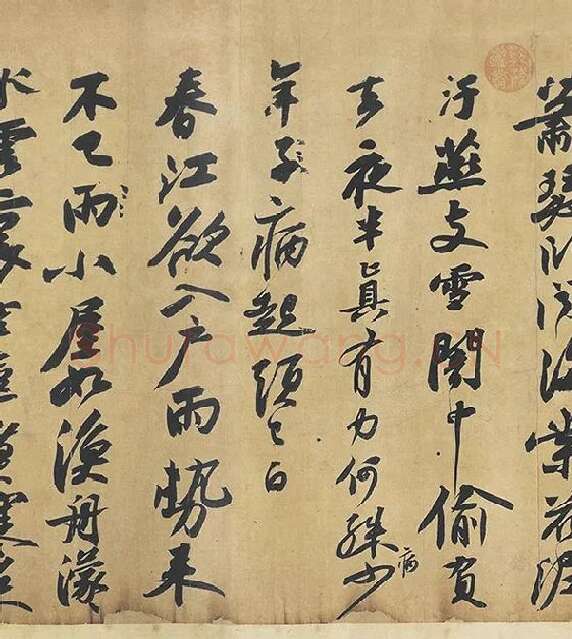 蕭瑟卧聞海棠花泥
汙燕支雪闇中偷負
去夜半真有力何殊少
病
年子病起頭已白
春江欲入户雨勢来
不已雨小屋如漁舟濛
水雲裏空庖煑寒菜
Shufawang.CN